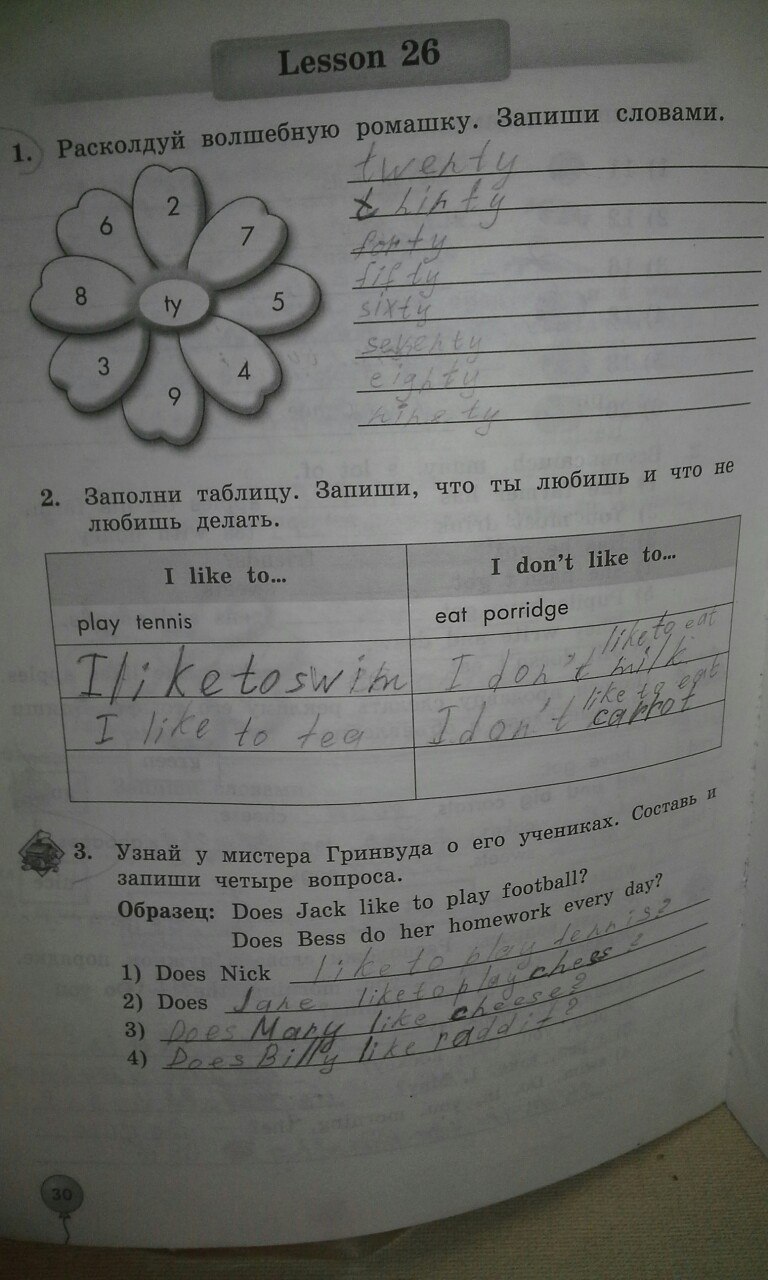 Lesson 26
1. Расколдуй волшебную ромашку. Запиши словами.
2
7
5
4
9
3
8
6
ty
twenty
thirty
forty
fifty
sixty
seventy
eighty
ninety
2. Заполни таблицу. Запиши, что ты любишь и что не
любишь делать.
I like to...
I don't like to...
play tennis
eat porridge
I like to swim
I don't like to eat milk
I like to tea
I don't like to eat carrot
3. Узнай у мистера Гринвуда о его учениках. Составь и
запиши четыре вопроса.
Образец: Does Jack like to play football?
Does Bess do her homework every day?
1) Does Nick like to play tennis?
2) Does Jane like to play chees?
3) Does Mary like cheese?
4) Does Billy like raddit?
30